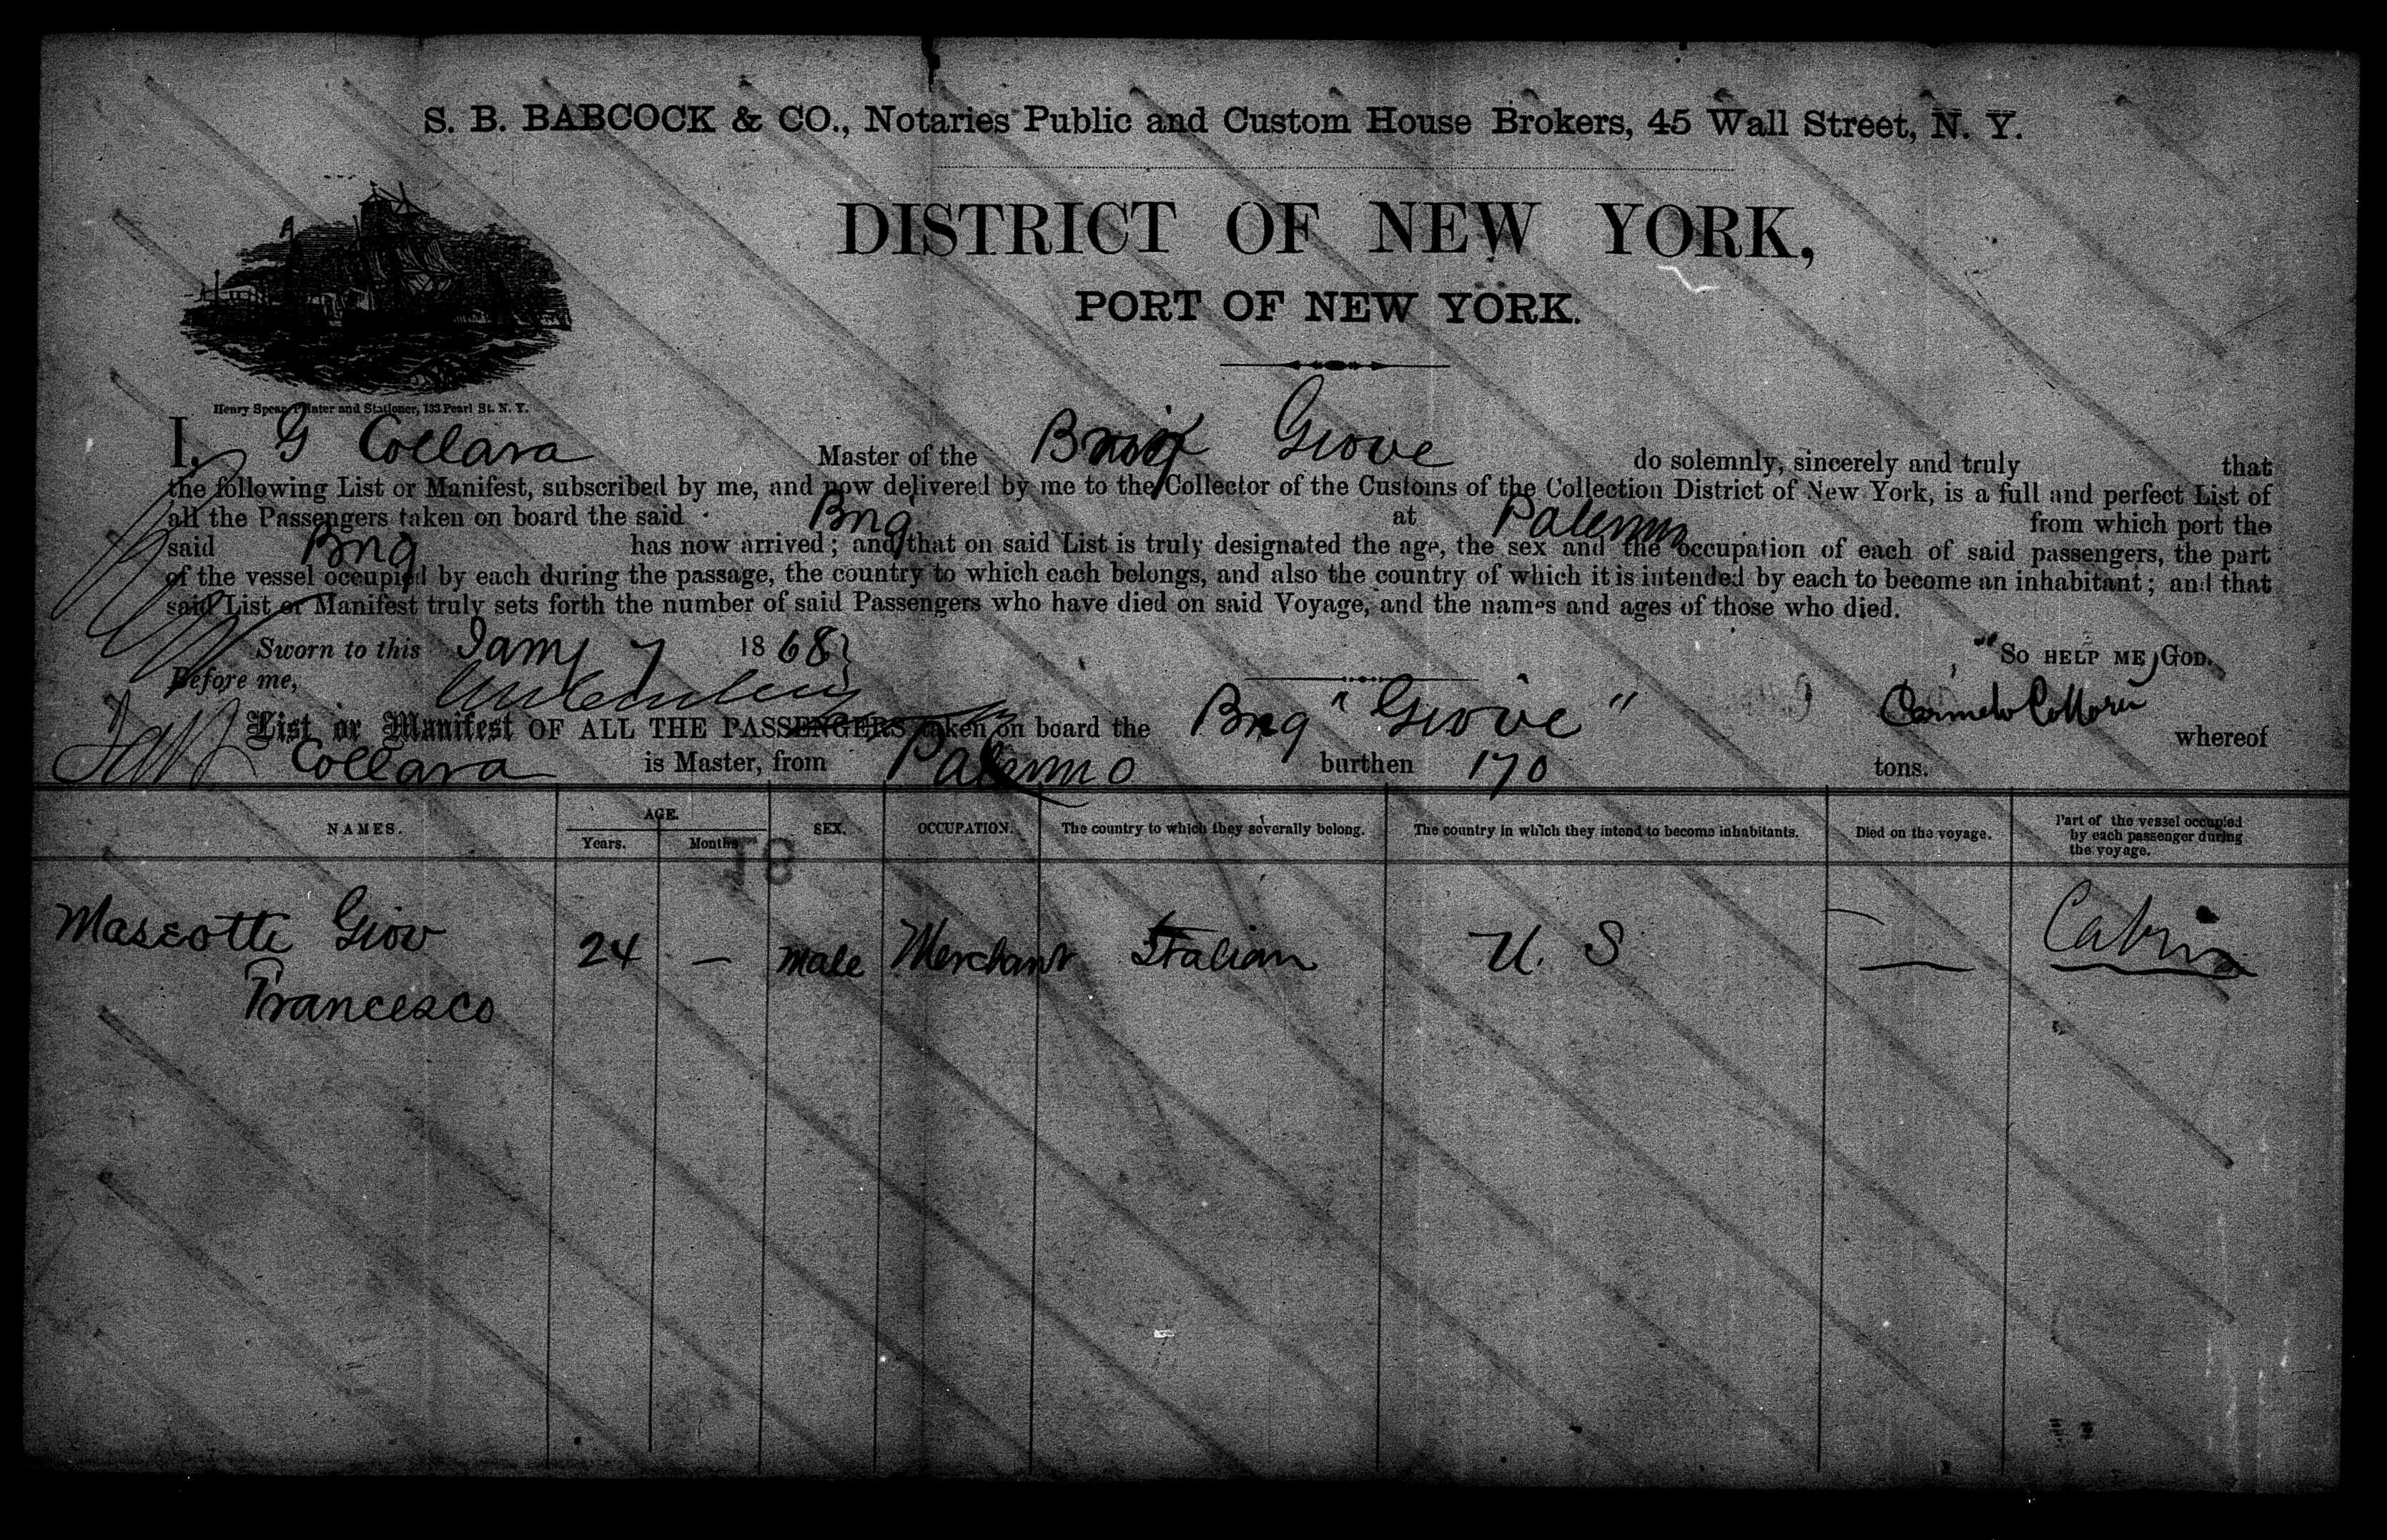 S. B. BABCOCK & CO., Notaries Public and Custom House Brokers, 45 Wall Street, N. Y.
DISTRICT OF NEW YORK,
PORT OF NEW YORK.
Henry Spear, Printer and Stationer, 133 Pearl St. N. Y.
I, G Collara Master of the Brig Giove do solemnly, sincerely and truly that
the following List or Manifest, subscribed by me, and now delivered by me to the Collector of the Customs of the Collection District of New York, is a full and perfect List of
all the Passengers taken on board the said Brig at Palermo from which port the
said Brig has now arrived; and that on said List is truly designated the age, the sex and the occupation of each of said passengers, the part
of the vessel occupied by each during the passage, the country to which each belongs, and also the country of which it is intended by each to become an inhabitant; and that
said List or Manifest truly sets forth the number of said Passengers who have died on said Voyage, and the names and ages of those who died.
Sworn to this Jany 7 1868 So HELP ME GOD.
Before me,
List or Manifest OF ALL THE PASSENGERS taken on board the Brig "Giove" whereof
Collara is Master, from Palermo burthen 170 tons.
NAMES. AGE. Years. Months SEX. OCCUPATION. The country to which they severally belong. The country in which they intend to become inhabitants. Died on the voyage. Part of the vessel occupied by each passenger during the voyage.
18
Mascotte Giov 24 — male Merchant Italian U. S — Cabin
Francesco